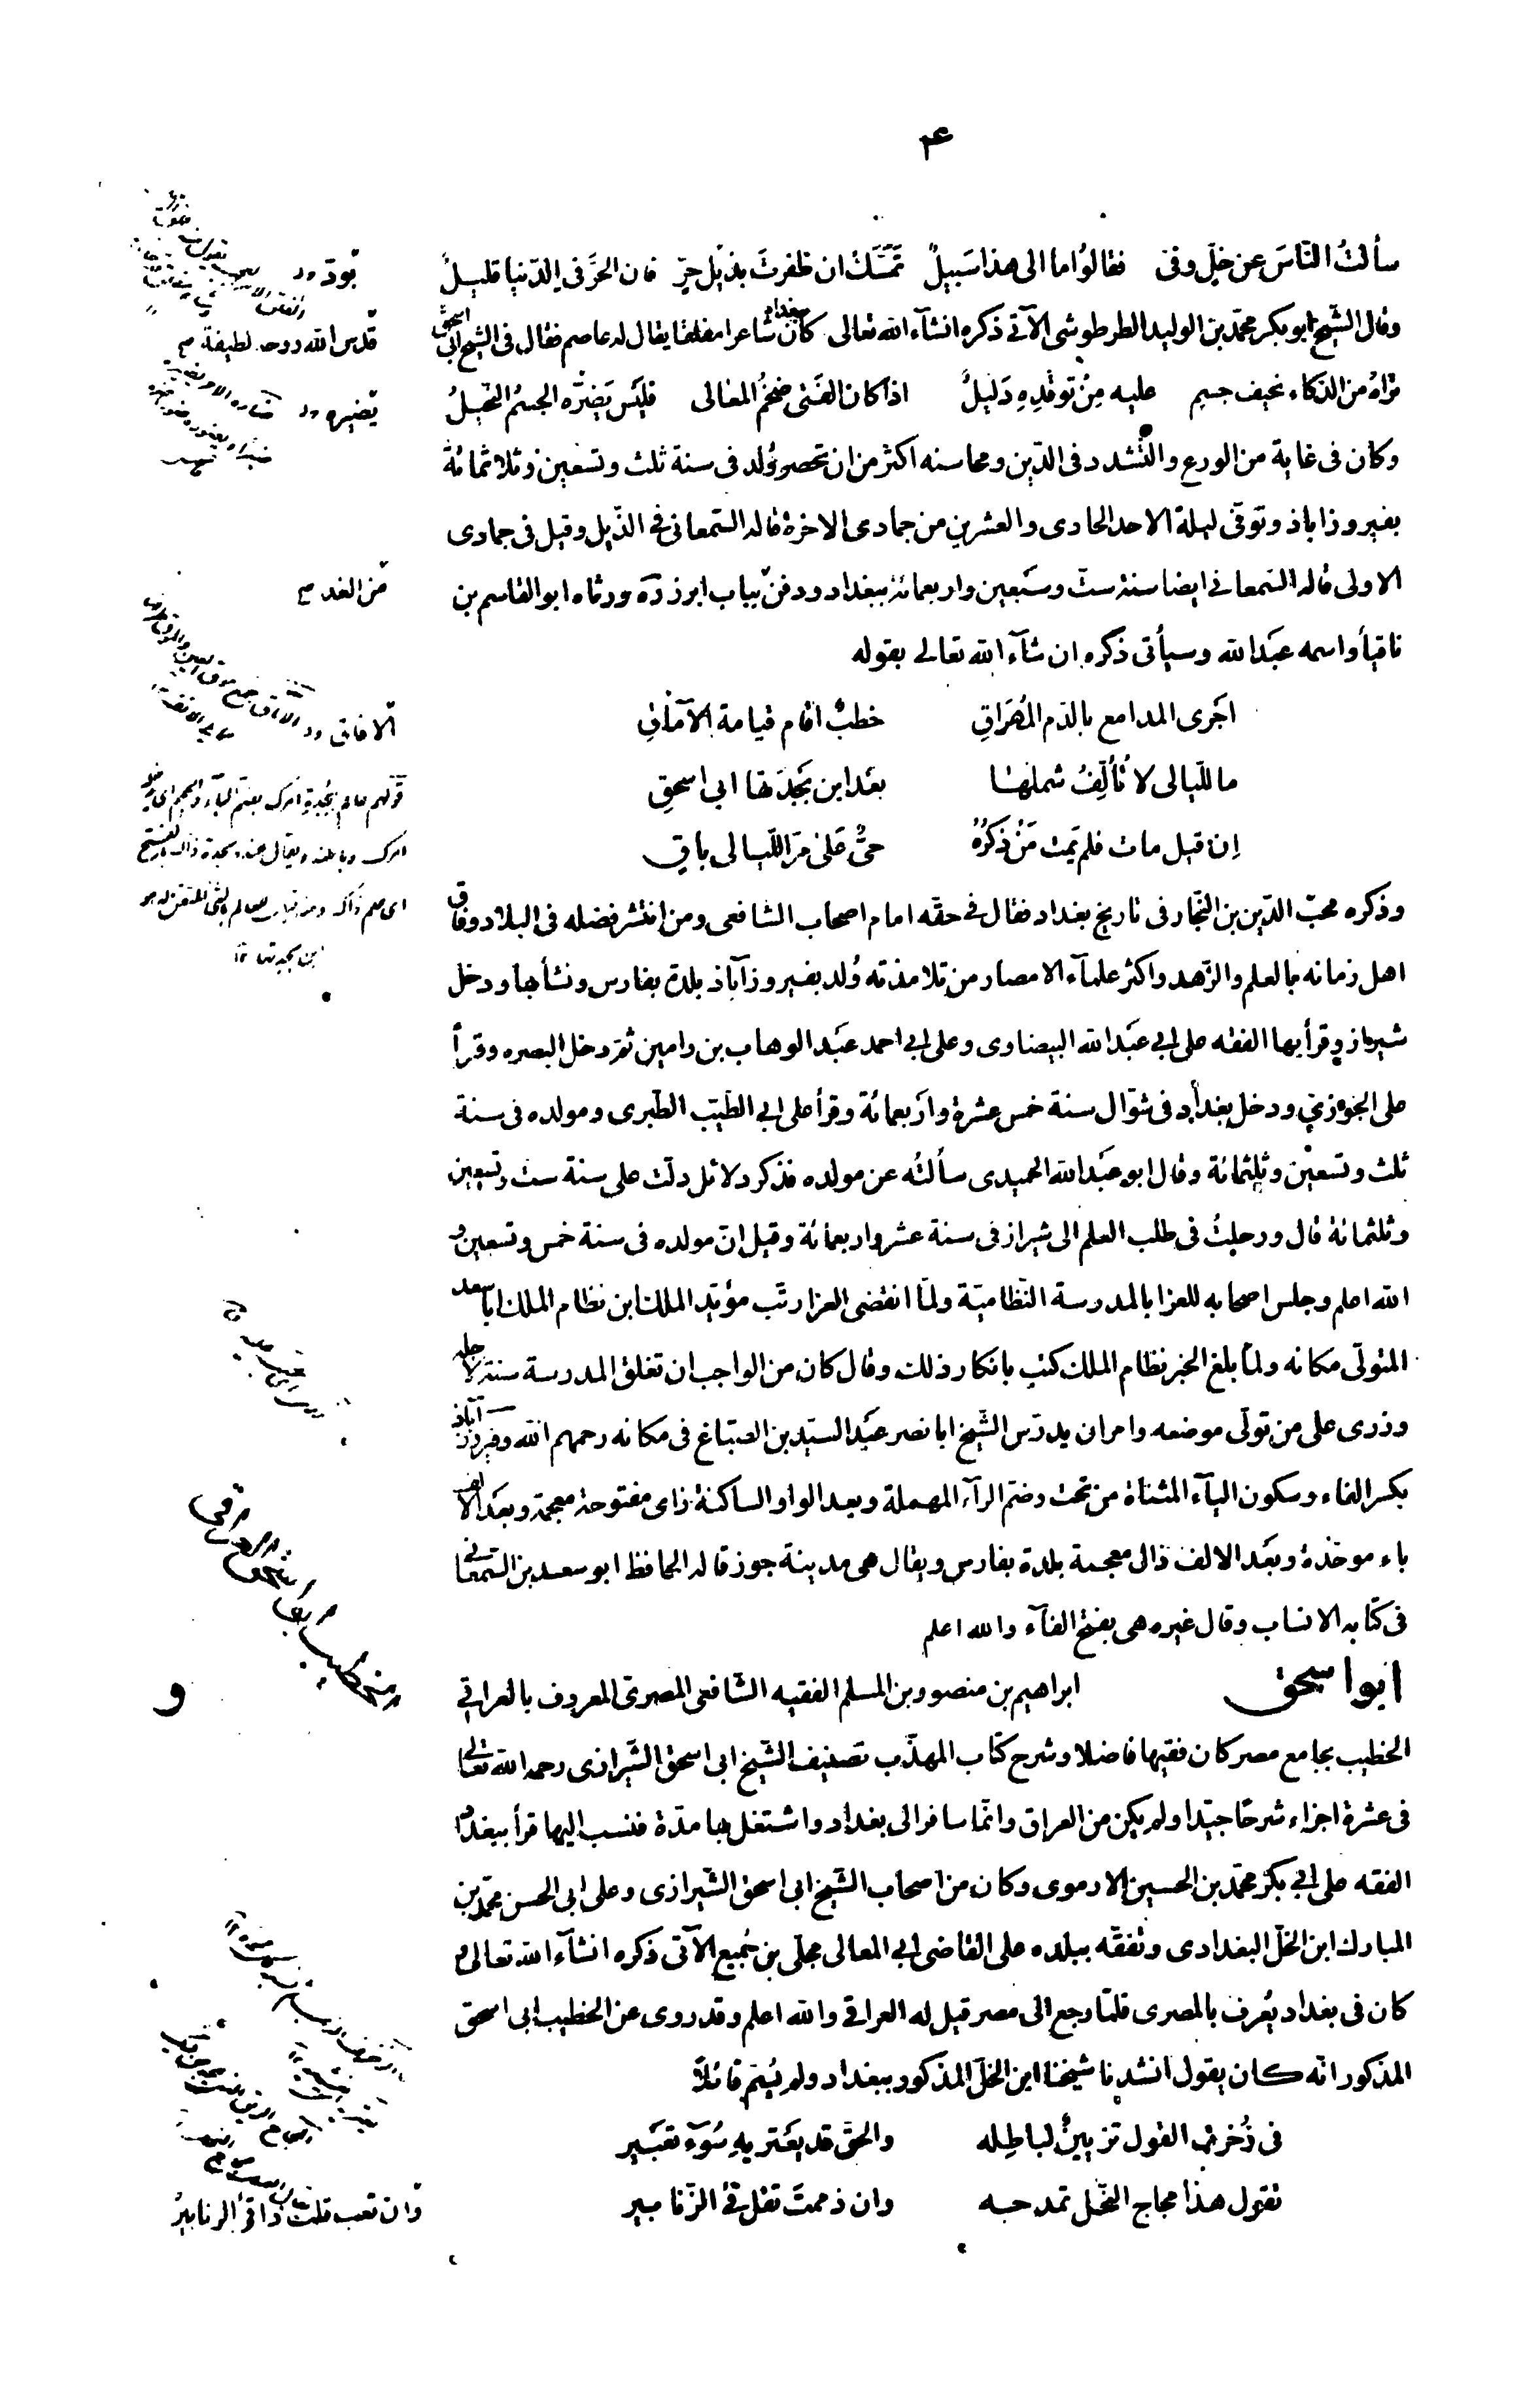 ۴
سألتُ النّاسَ عن خلٍّ وفىّ فقالوُا ما الى هذا سَبيلٌ تمَسَّك ان ظفرتَ بذيْل حرٍّ فان الحرَّ فى الدّنيا قليلٌ
وقال الشيخ ابو بكر محمّد بن الوليد الطرطوشى الآتى ذكره انشآء الله تعالى كان ببغداد شاعرا مفلقا يقال له عاصم فقال فى الشيخ ابى اسحق
تراهُ من الذكاء نحيف جسمٍ عليه مِنْ توقّدِهِ دَليلٌ اذا كان الفَتى ضخمُ المعَالى فليَس يَضرّه الجسْمُ النّحيلُ
وكان فى غاية من الورع والتّشدد فى الدّين ومحاسنه اكثر من ان تحصر وُلد فى سنة ثلث وتسعين وثلاثمائة
بفيروزاباذ وتوفّى ليلة الاحد الحادى والعشرين من جمادى الاخرة قاله السّمعانى فى الذّيل وقيل فى جمادى
الاولى قاله السّمعانى ايضا سنة ستّ وسَبعين واربعمائة ببغداد ودفن بباب ابرز رَه ورثاه ابو القاسم بن
ناقيأ واسمه عبَد الله وسيأتى ذكره ان شآء الله تعالى بقوله
اجَرى المدامع بالدّم المُهراقِ خطبٌ اقام قيامة الآمَاقِ
ما للّيالى لا تُألّفُ شملهَا بعَد ابن بَجْدَتها ابى اسحقِ
اِن قيل مات فلم يَمت مَنْ ذكرُهُ حىٌّ عَلى مرّ اللّيالى باقى
وذكره محبّ الدّين بن النّجار فى تاريخ بغداد فقال فى حقّه امام اصحاب الشافعى ومن انتشر فضله فى البلاد وفاق
اهل زمانه بالعلم والزّهد واكثر علمآء الامصار من تلامذته وُلد بفيروزآباذ بلدة بفارس ونشأ بها ودخل
شيراز وقرأ بها الفقه على ابى عبَد الله البيضاوى وعلى ابى احمد عبَد الوهاب بن رامين ثم دخل البصره وقرأ
على الجوزى ودخل بغداد فى شوّال سنة خمس عشرة واربعمائة وقرأ على ابى الطّيب الطّبرى ومولده فى سنة
ثلث وتسعين وثلثمائة وقال ابو عبَد الله الحميدى سألتُه عن مولده فذكر دلائل دلّت على سنة ست وتسعين
وثلثمائة قال ورحلتُ فى طلب العلم الى شيراز فى سنة عشر واربعمائة وقيل انّ مولده فى سنة خمس وتسعين و
الله اعلم وجلس اصحابه للعزا بالمدرسة النّظاميّة ولمّا انقضى العزا رتّب مؤيّد الملك ابن نظام الملك ابا سعد
المتولّى مكانه ولمّا بلغ الخبر نظام الملك كتب بانكار ذلك وقال كان من الواجب ان تغلق المدرسة سنة لاجله
وزرى على من تولّى موضعه وامر ان يدرّس الشّيخ ابا نصر عبَد السّيّد بن الصبّاغ فى مكانه رحمهم الله وفيروزآباذ
بكسر الفاء وسكون اليآء المثناة من تحت وضمّ الرآء المهملة وبعد الواو الساكنة زاى مفتوحة معجمة وبعَد الالف
باء موحّدة وبعَد الالف ذال معجمة بلدة بفارس ويقال هى مدينة جوز قاله الحافظ ابو سعد بن السّمعانى
فى كتابه الانساب وقال غيره هى بفتح الفآء والله اعلم
ابو اسحق ابراهيم بن منصور بن المسلم الفقيه الشّافعى المصرىّ المعروف بالعراقى
الخطيب بجامع مصر كان فقيها فاضلا وشرح كتاب المهذّب تصنيف الشّيخ ابى اسحق الشّيرازى رحمه الله تعالى
فى عشرة اجزاء شرحًا جيّدا ولم يكن من العراق وانمّا سافر الى بغداد واشتغل بها مدّة فنسب اليها قرأ ببغداد
الفقه على ابى بكر محمّد بن الحسين الارموى وكان من اصحاب الشّيخ ابى اسحق الشّيرازى وعلى ابى الحسن محمّد بن
المبارك ابن الخلّ البغدادى وتفقّه ببلده على القاضى ابى المعالى مجلّى بن جُميع الآتى ذكره انشآء الله تعالى و
كان فى بغداد يُعرف بالمصرى فلمّا رجع الى مصر قيل له العراقى والله اعلم وقد روى عن الخطيب ابى اسحق
المذكور انّه كان يقول انشدنا شيخنا ابن الخلّ المذكور ببغداد ولم يُسَمّ قائلاً
فى زُخرفِ القول تزيينٌ لباطِله والحقّ قد يعَتريهِ سُوَء تعبَير
تقول هذا مجاج النّحل تمدحه وان ذممتَ تقل قئ الزّنابير
بَودّ
قدّس الله روحه لطيفة
يَضيره
من الغد
الافاق
وّان تعب قلت ذا قئ الزنابير